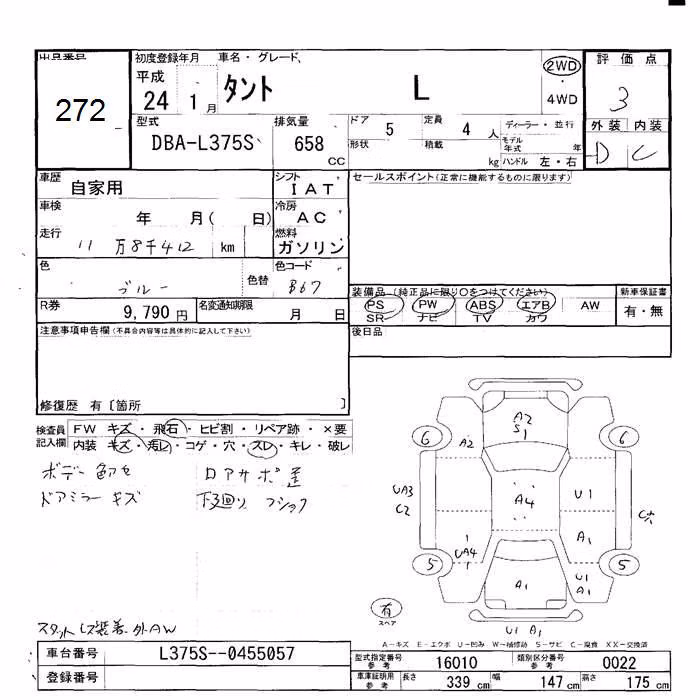 出品番号 初度登録年月 車名・グレード 評価点
272
平成 24年 1月 タント L
2WD
4WD
3
外装 内装
D C
型式 排気量 ドア 5 定員 4人 ディーラー・並行
DBA-L375S 658 CC
形状 積載 kg モデル年式 年
ハンドル 左・右
車歴 自家用 シフト IAT セールスポイント(正常に機能するものに限ります)
車検 年 月( 日) 冷房 AC
走行 11万8千412 km 燃料 ガソリン
色 ブルー 色替 色コード B67
装備品 (純正品に限り○をつけてください) 新車保証書
PS PW ABS エアB AW 有・無
SR ナビ TV カワ
R券 9,790円 名変通知期限 月 日
後日品
注意事項申告欄(不具合内容等は具体的に記入して下さい)
修復歴 有〔箇所 〕
検査員記入欄 FW キズ・飛石・ヒビ割・リペア跡・×要
内装 キズ・汚レ・コゲ・穴・スレ・キレ・破レ
ボデー色アセ ロアサポ歪
ドアミラーキズ 下廻り フショク
A2
S1
6 A2 6
UA3
C2
A4
U1
UA4
A1
5 5
A1
U1
A1
有
スペア
U1 A1
スタットレス装着 外AW
A-キズ E-エクボ U-凹み W-補修跡 S-サビ C-腐食 XX-交換済
車台番号 L375S--0455057
登録番号
型式指定番号 参考 16010 類別区分番号 参考 0022
車庫証明用 参考 長さ 339 cm 幅 147 cm 高さ 175 cm